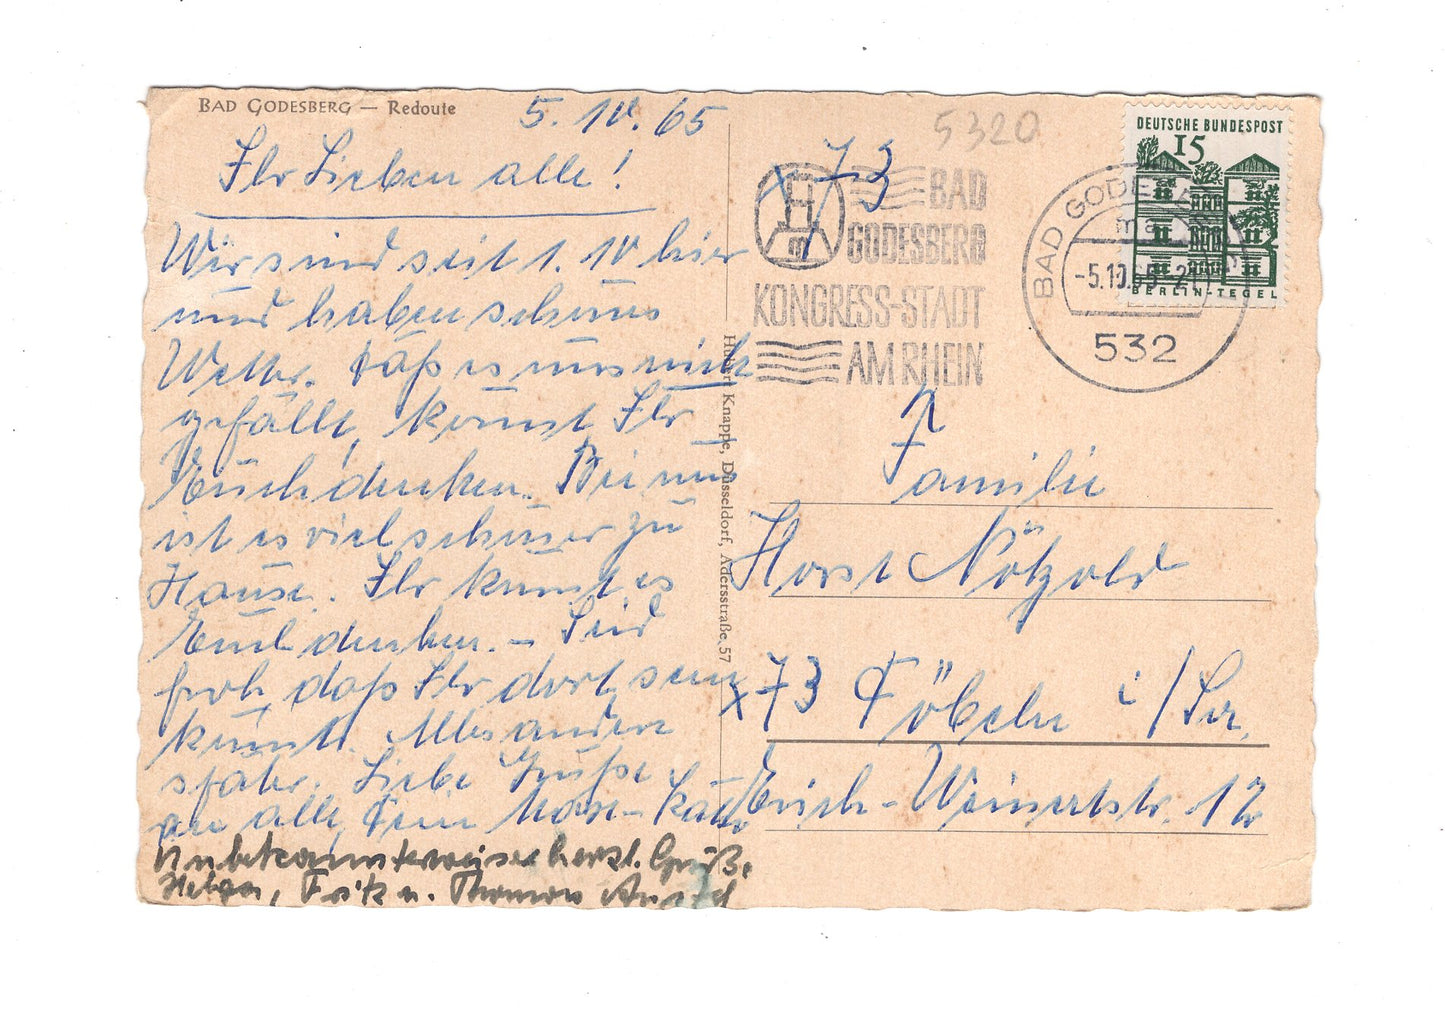 BAD GODESBERG — Redoute
5. IV. 65
Ihr Lieben alle!
Wir sind seit 1. IV hier
und haben schönes
Wetter. Daß es uns nicht
gefällt, könnt Ihr
Euch denken. Bei uns
ist es viel schöner zu
Hause. Ihr könnt es
Euch denken. – Seid
froh, daß Ihr dort sein
könnt. Alles andere
später. Liebe Grüße
an alle,
Unbekannterweise herzl. Grüße,
Helga, Fritz u. Thomas
Hubert Knappe, Düsseldorf, Adersstraße 57
5320
x 73
BAD
GODESBERG
KONGRESS-STADT
AM RHEIN
BAD GODESBERG
-5.10.65-21
532
DEUTSCHE BUNDESPOST
15
BERLIN-TEGEL
Familie
Horst Nötzold
x 73 Döbeln i/Sa.
Erich-Weinertstr. 12